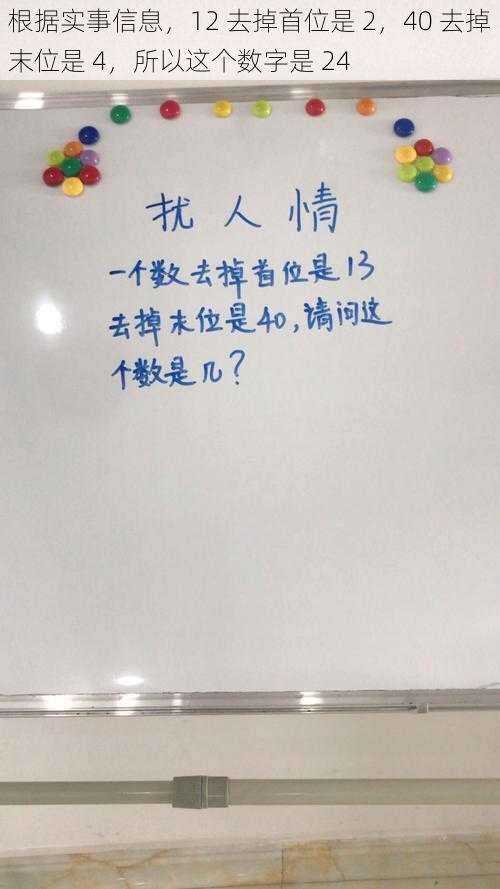 根据实事信息，12 去掉首位是 2，40 去掉
末位是 4，所以这个数字是 24
扰人情
一个数去掉首位是13
去掉末位是40，请问这
个数是几？